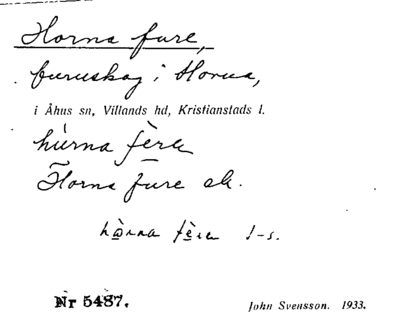 Horna fure,
furuskog i Horna,
i Åhus sn, Villands hd, Kristianstads l.
húrna fèra
Horna fure ek.
hòrna fèra l-s.
Nr 5487.
John Svensson. 1933.